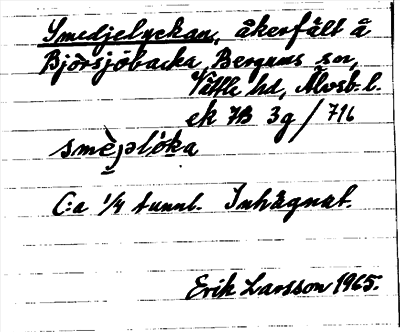 Smedjelyckan, åkerfält å
Björsjöbacka, Bergums sn,
Vättle hd, Älvsb. l.
ek 7B 3g / 716
smè̱plo̱ka
C:a 1/4 tunnl. Inhägnat.
Erik Larsson 1965.